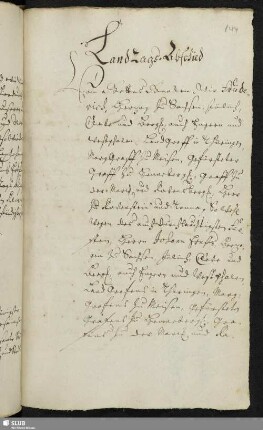 LandTags-Abschied
Von Gottes Gnaden Wir Friede
rich, Herzog zu Sachsen, Jülich,
Cleve und Bergk, auch Engern und
Westphalen, Landgraff in Thüringen,
Marggraff zu Meißen, Gefürsteter
Graff zu Henneberg, Graff zu
der Marck und Ravensbergk, Herr
zu Ravenstein und Tonna,
Herrn Johann Ernst, Herzo
gen zu Sachsen, Jülich, Cleve und
Bergk, auch Engern und Westphalen,
Landgrafens in Thüringen, Marg
grafens zu Meißen, gefürsteten
Grafens zu Henneberg, Gra
fens zu der Marck und Ra
SLUB